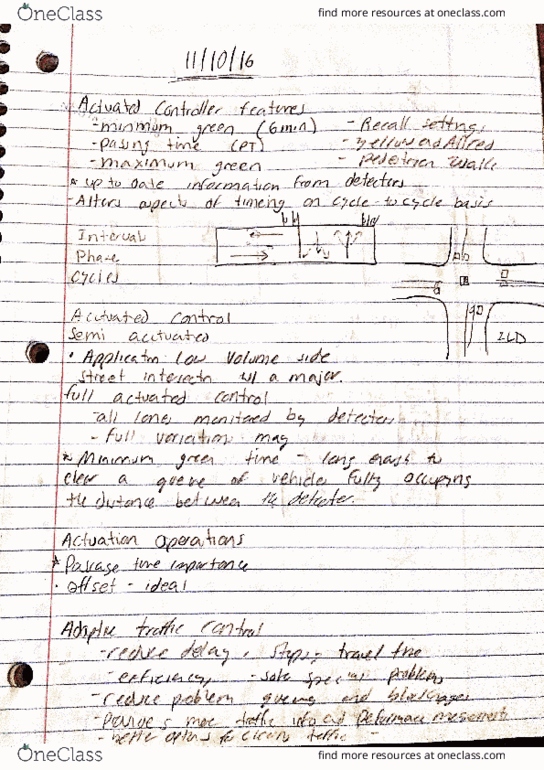 OneClass
find more resources at oneclass.com
11/10/16
Actuated Controller features
-minimum green (Gmin) - Recall settings
-passing time (PT) - yellow and Allred
-maximum green - pedestrian walk
* up to date information from detectors
-Alters aspects of timeing on cycle-to cycle basis
Interval
Phase
cycles
Actuated control
Semi actuated
2LD
• Application low volume side
street intersectn w/ a major.
full actuated control
-all lanes monitored by detectors
- full variation may
* Minimum green time - long enough to
clear a queue of vehicles fully occupying
the distance between the detector.
Actuation Operations
* Passage time importance
• offset - ideal
Adaptive traffic control
-reduce delay, stops, travel time
-efficiency - special problems
-reduce problem queuing and blockages
more traffic info and Performance measurements
-better options to clear traffic
OneClass
find more resources at oneclass.com